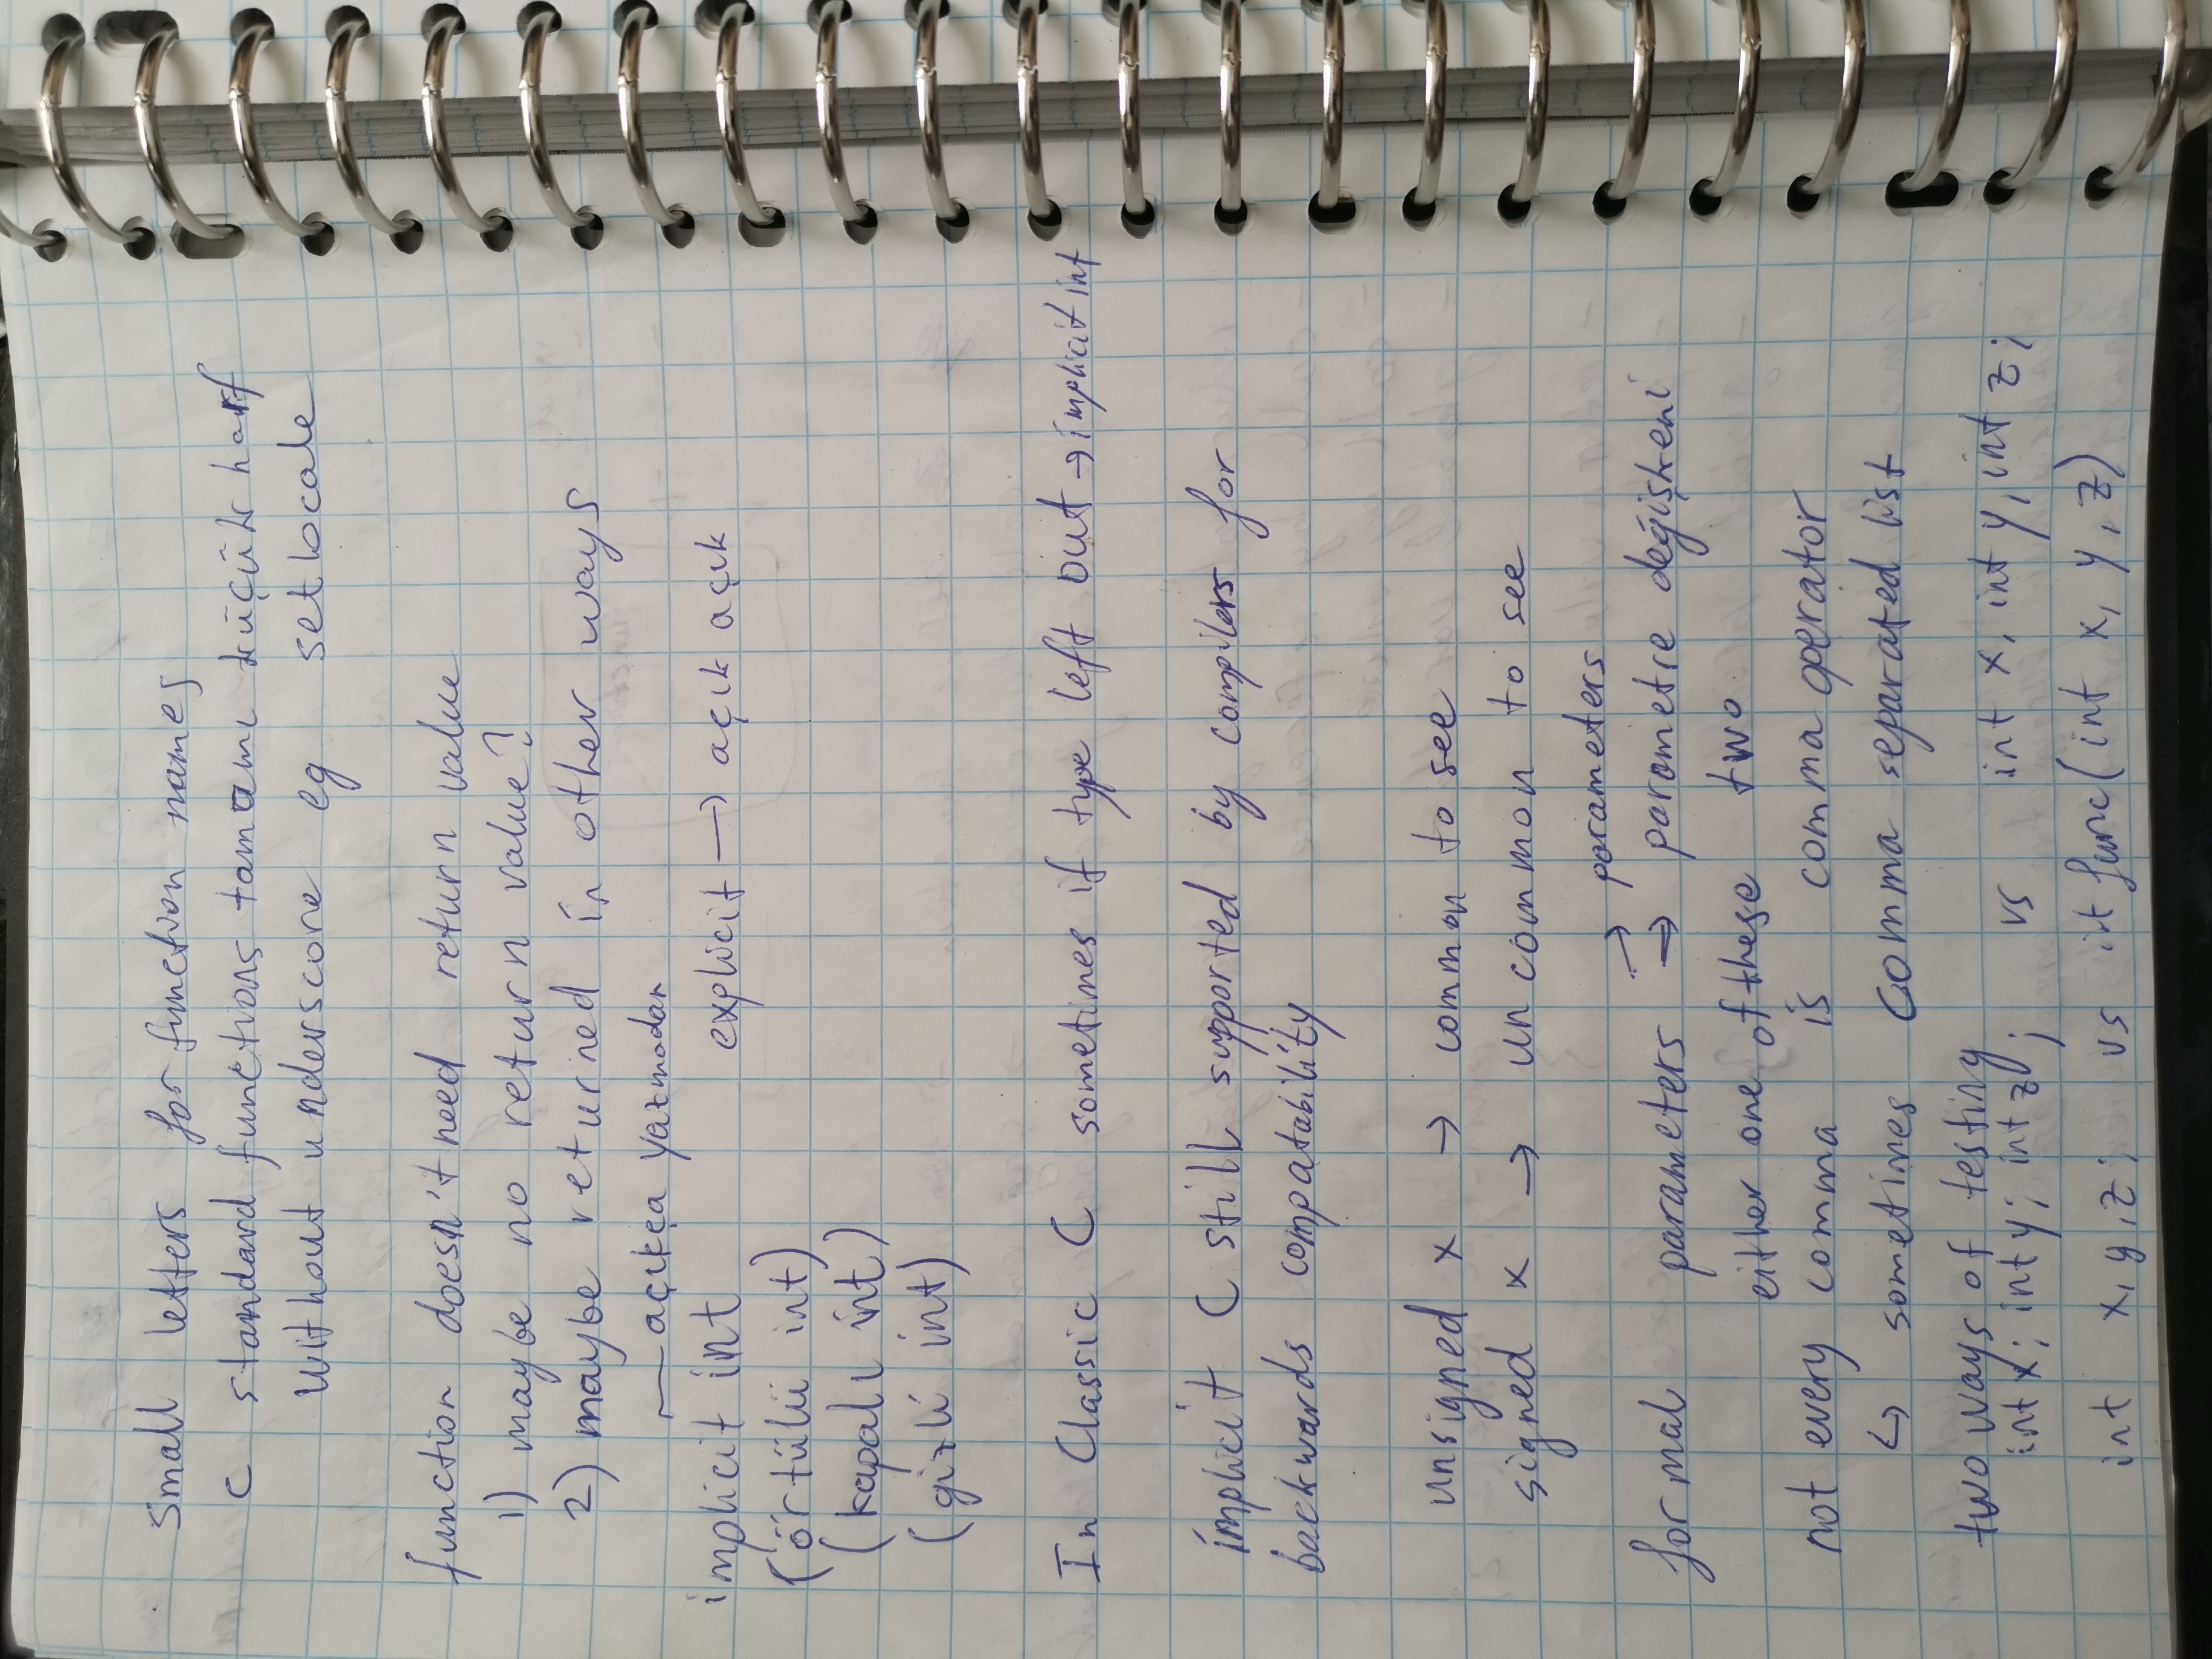 small letters for function names
C standard functions tamamı küçük harf
without underscore eg setlocale
function doesn't need return value
1) maybe no return value?
2) maybe returned in other ways
— açıkça yazmadan
implicit int explicit → açık açık
(örtülü int)
(kapalı int)
(gizli int)
In Classic C sometimes if type left out → implicit int
implicit C still supported by compilers for
backwards compatability
unsigned x → common to see
signed x → uncommon to see
→ parameters
formal parameters → parametre değişkeni
either one of these two
not every comma is comma operator
↳ sometimes comma separated list
two ways of testing
int x; int y; int z; vs int x, int y, int z;
int x, y, z; vs int func(int x, y, z)